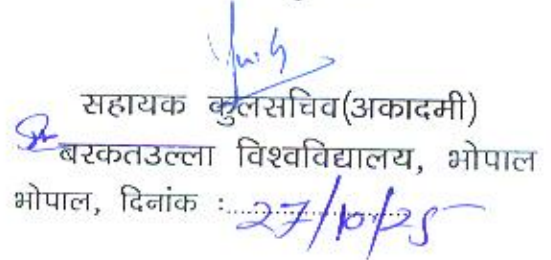 सहायक कुलसचिव(अकादमी)
बरकतउल्ला विश्वविद्यालय, भोपाल
भोपाल, दिनांक :.................. 27/10/25